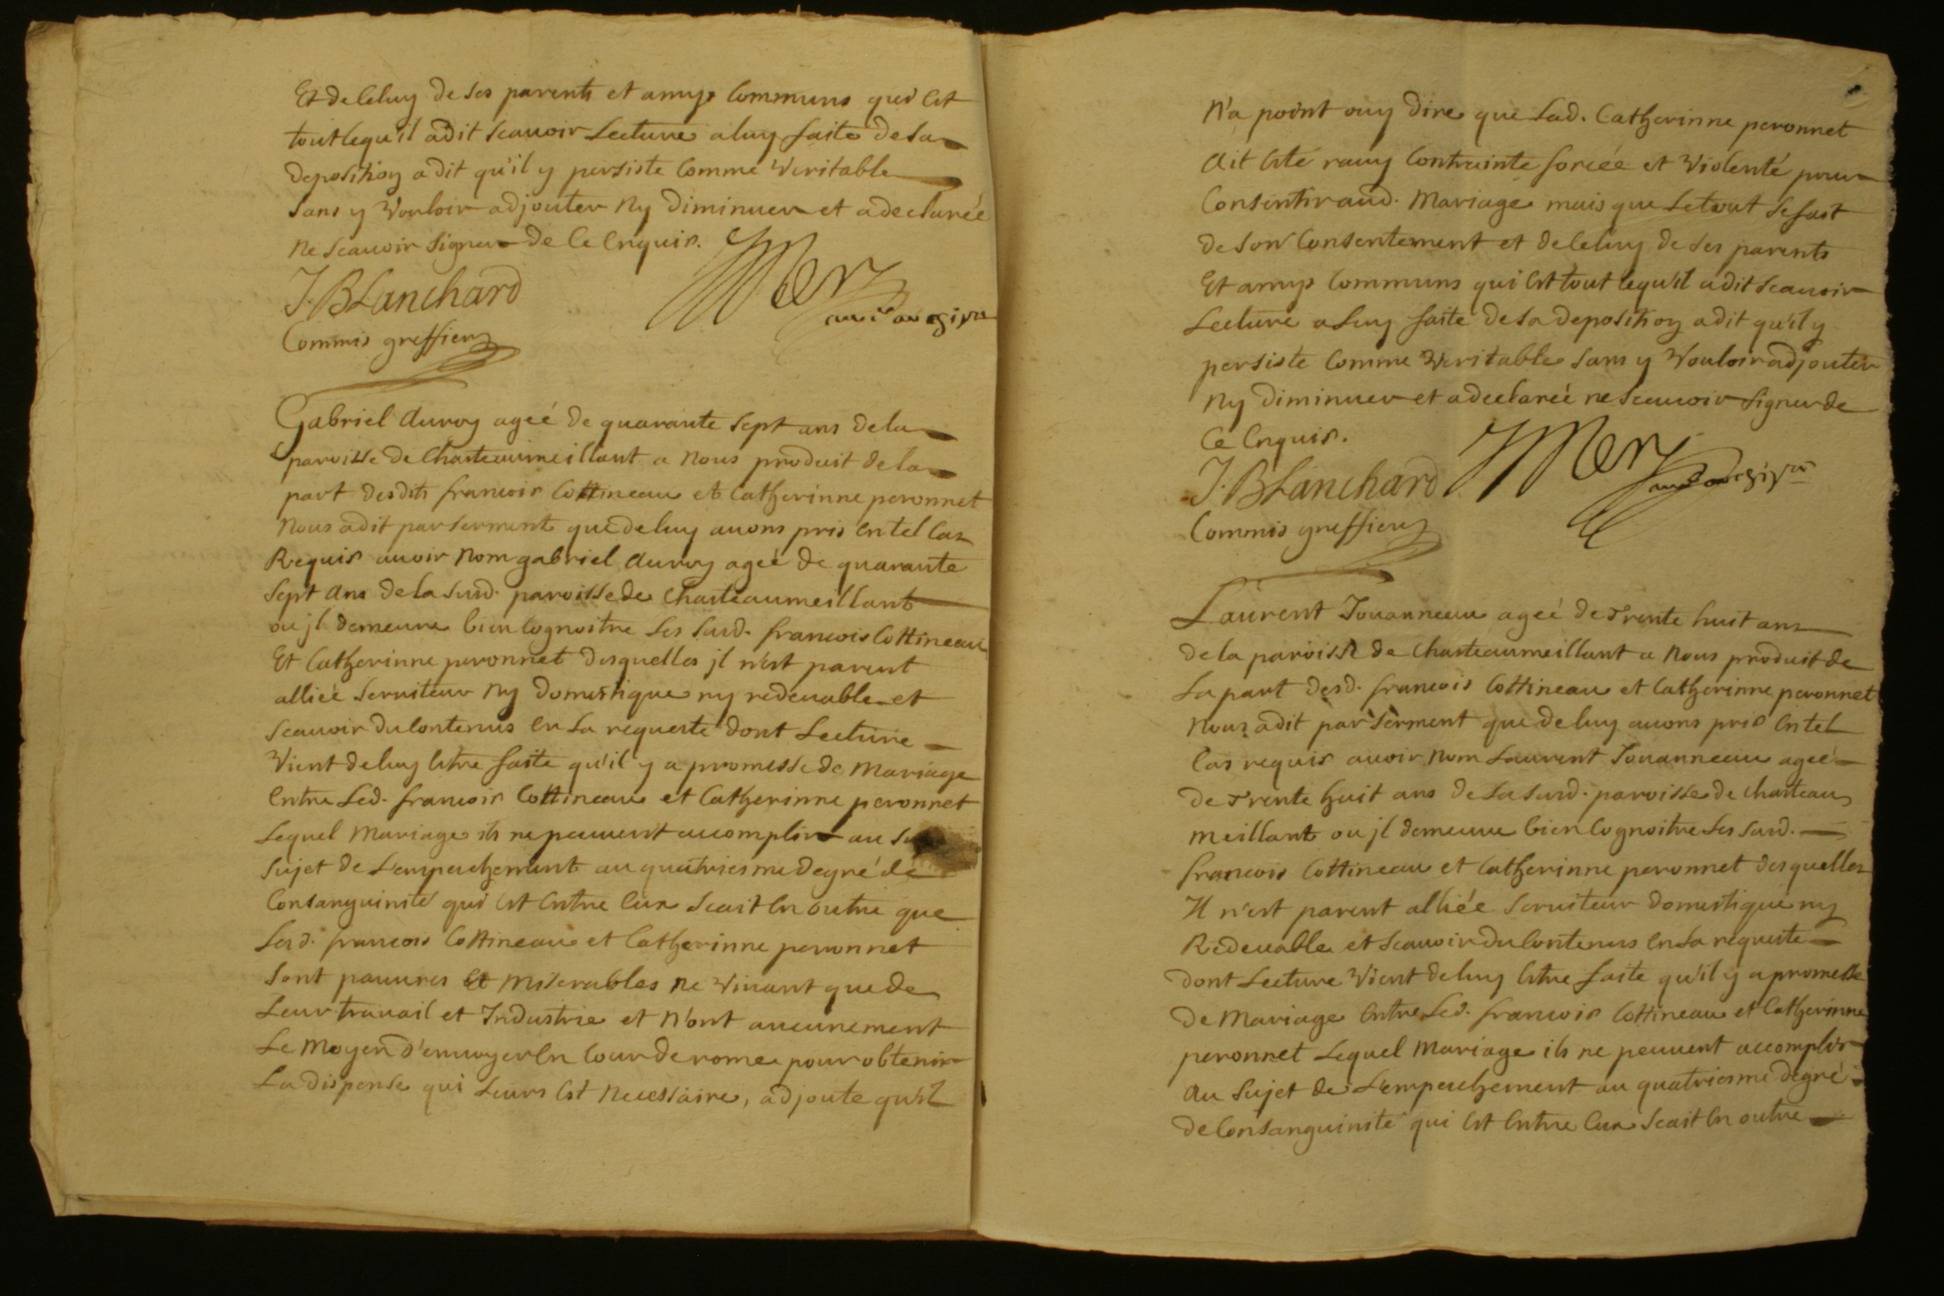 Et de celuy de ses parents et amys communs qui est
tout ce qu'il a dit scauoir Lecture a luy faite de sa
deposition a dit qu'il y persiste comme veritable
sans y vouloir adjouter ny diminuer et a declarée
ne scauoir signer de ce enquis.
J. BLanchard
Commis greffier
Gabriel auroy ageé de quarante sept ans de la
paroisse de Chasteaumeillant a nous produit de la
part desdits francois Cottineau et Catherinne peronnet
nous a dit par serment que de luy auons pris en tel cas
Requis auoir nom gabriel auroy ageé de quarante
sept ans de la susd. paroisse de Chasteaumeillant
ou jl demeure bien cognoitre les susd. francois Cottineau
Et Catherinne peronnet desquelles jl n'est parent
alliée seruiteur ny domestique ny redeuable et
scauoir du contenus en la requeste dont Lecture
vient de luy estre faite qu'il y a promesse de mariage
entre Led. francois Cottineau et Catherinne peronnet
Lequel mariage ils ne peuuent accomplir au
sujet de L'empeschement au quatriesme degré de
consanguinité qui est entre eux scait en outre que
Lesd. francois Cottineau et Catherinne peronnet
sont pauures et miserables ne viuant que de
Leur trauail et Industrie et n'ont aucunement
Le moyen d'enuoyer en cour de rome pour obtenir
La dispense qui Leurs est necessaire, adjoute qu'il
n'a point ouy dire que Lad. Catherinne peronnet
ait esté rauy contrainte forcée et violenté pour
consentir aud. mariage mais que Le tout se fait
de son consentement et de celuy de ses parents
Et amys communs qui est tout ce qu'il a dit scauoir
Lecture a Luy faite de sa deposition a dit qu'il y
persiste comme veritable sans y vouloir adjouter
ny diminuer et a declarée ne scauoir signer de
ce enquis.
J. BLanchard
Commis greffier
Laurent Jouanneau ageé de trente huit ans
de la paroisse de Chasteaumeillant a nous produit de
La part desd. francois Cottineau et Catherinne peronnet
nous a dit par serment que de luy auons pris en tel
cas requis auoir nom Laurent Jouanneau ageé
de trente huit ans de La susd. paroisse de Chasteau
meillant ou jl demeure bien cognoitre Les susd.
francois Cottineau et Catherinne peronnet desquelles
Il n'est parent alliée seruiteur domestique ny
Redeuable et scauoir du contenus en La requeste
dont Lecture vient de luy estre faite qu'il y a promesse
de mariage entre Led. francois Cottineau et Catherinne
peronnet Lequel mariage ils ne peuuent accomplir
au sujet de L'empeschement au quatriesme degré
de consanguinité qui est entre eux scait en outre